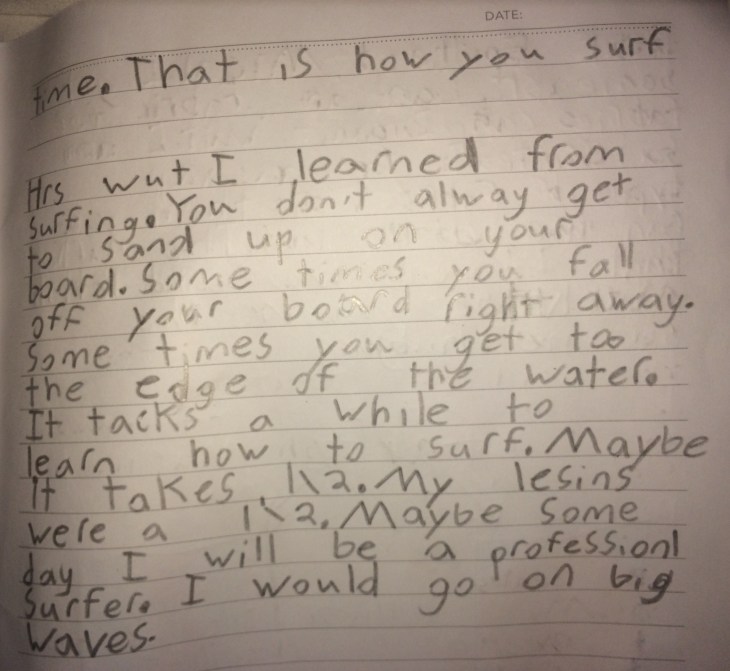 DATE:
time. That is how you surf
Hrs wut I learned from
surfing. You don't alway get
to sand up on your
board. Some times you fall
off your board right away.
Some times you get too
the edge of the water.
It tacks a while to
learn how to surf. Maybe
it takes 1\2. My lesins
were a 1\2. Maybe some
day I will be a professionl
surfer. I would go on big
waves.